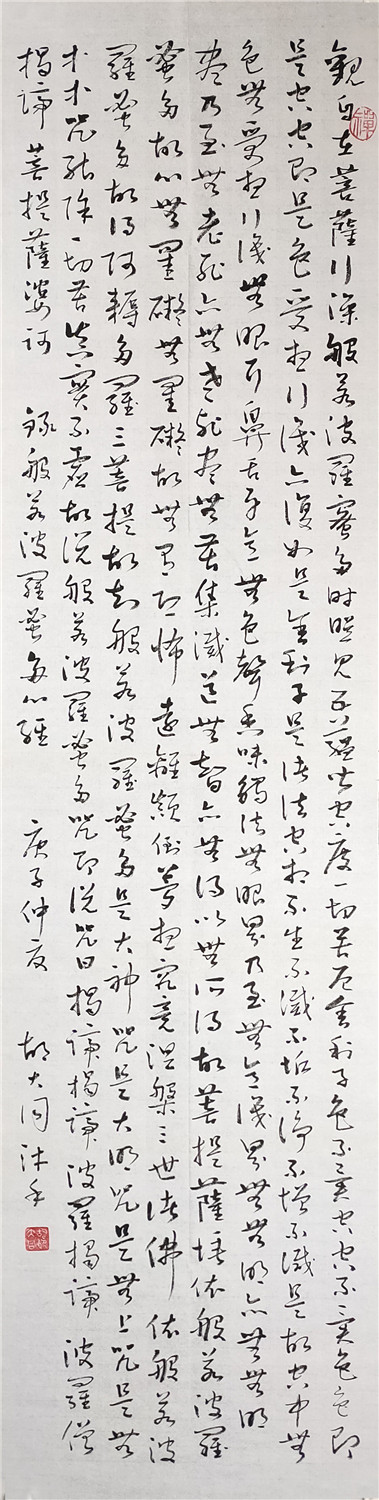 觀自在菩薩行深般若波羅蜜多時照見五蘊皆空度一切苦厄舍利子色不異空空不異色色即
是空空即是色受想行識亦復如是舍利子是諸法空相不生不滅不垢不淨不增不減是故空中無
色無受想行識無眼耳鼻舌身意無色聲香味觸法無眼界乃至無意識界無無明亦無無明
盡乃至無老死亦無老死盡無苦集滅道無智亦無得以無所得故菩提薩埵依般若波羅
蜜多故心無罣礙無罣礙故無有恐怖遠離顛倒夢想究竟涅槃三世諸佛依般若波
羅蜜多故得阿耨多羅三菩提故知般若波羅蜜多是大神咒是大明咒是無上咒是無
等等咒能除一切苦真實不虛故說般若波羅蜜多咒即說咒曰揭諦揭諦波羅揭諦 波羅僧
揭諦 菩提薩婆訶 錄般若波羅蜜多心經 庚子仲夏 胡大同沐手
禪